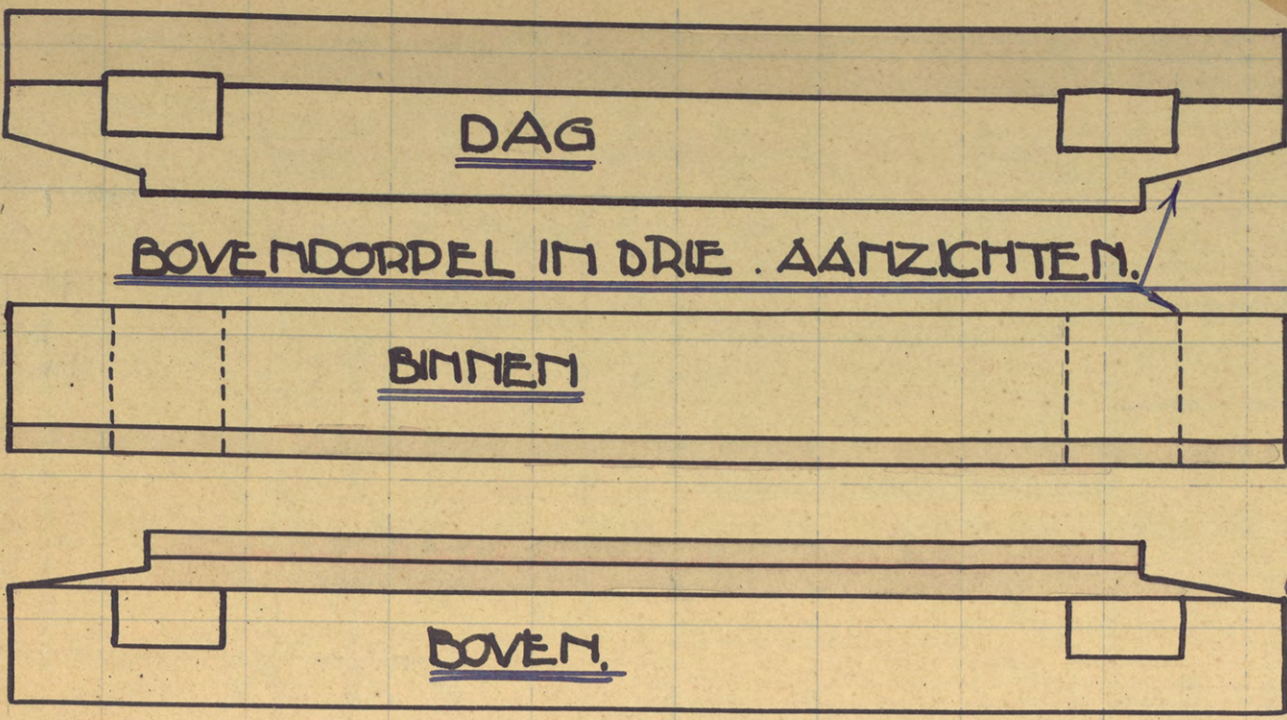 DAG
BOVENDORPEL IN DRIE . AANZICHTEN.
BINNEN
BOVEN.